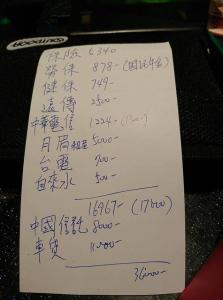 保險 6340
勞保 878- (國民年金)
健保 749-
遠傳 2500-
中華電信 1224-(1300-)
月眉租金 5000-
台電 700-
自來水 500-
16967-(17000)
中國信託 8000-
車貸 11000-
36000-